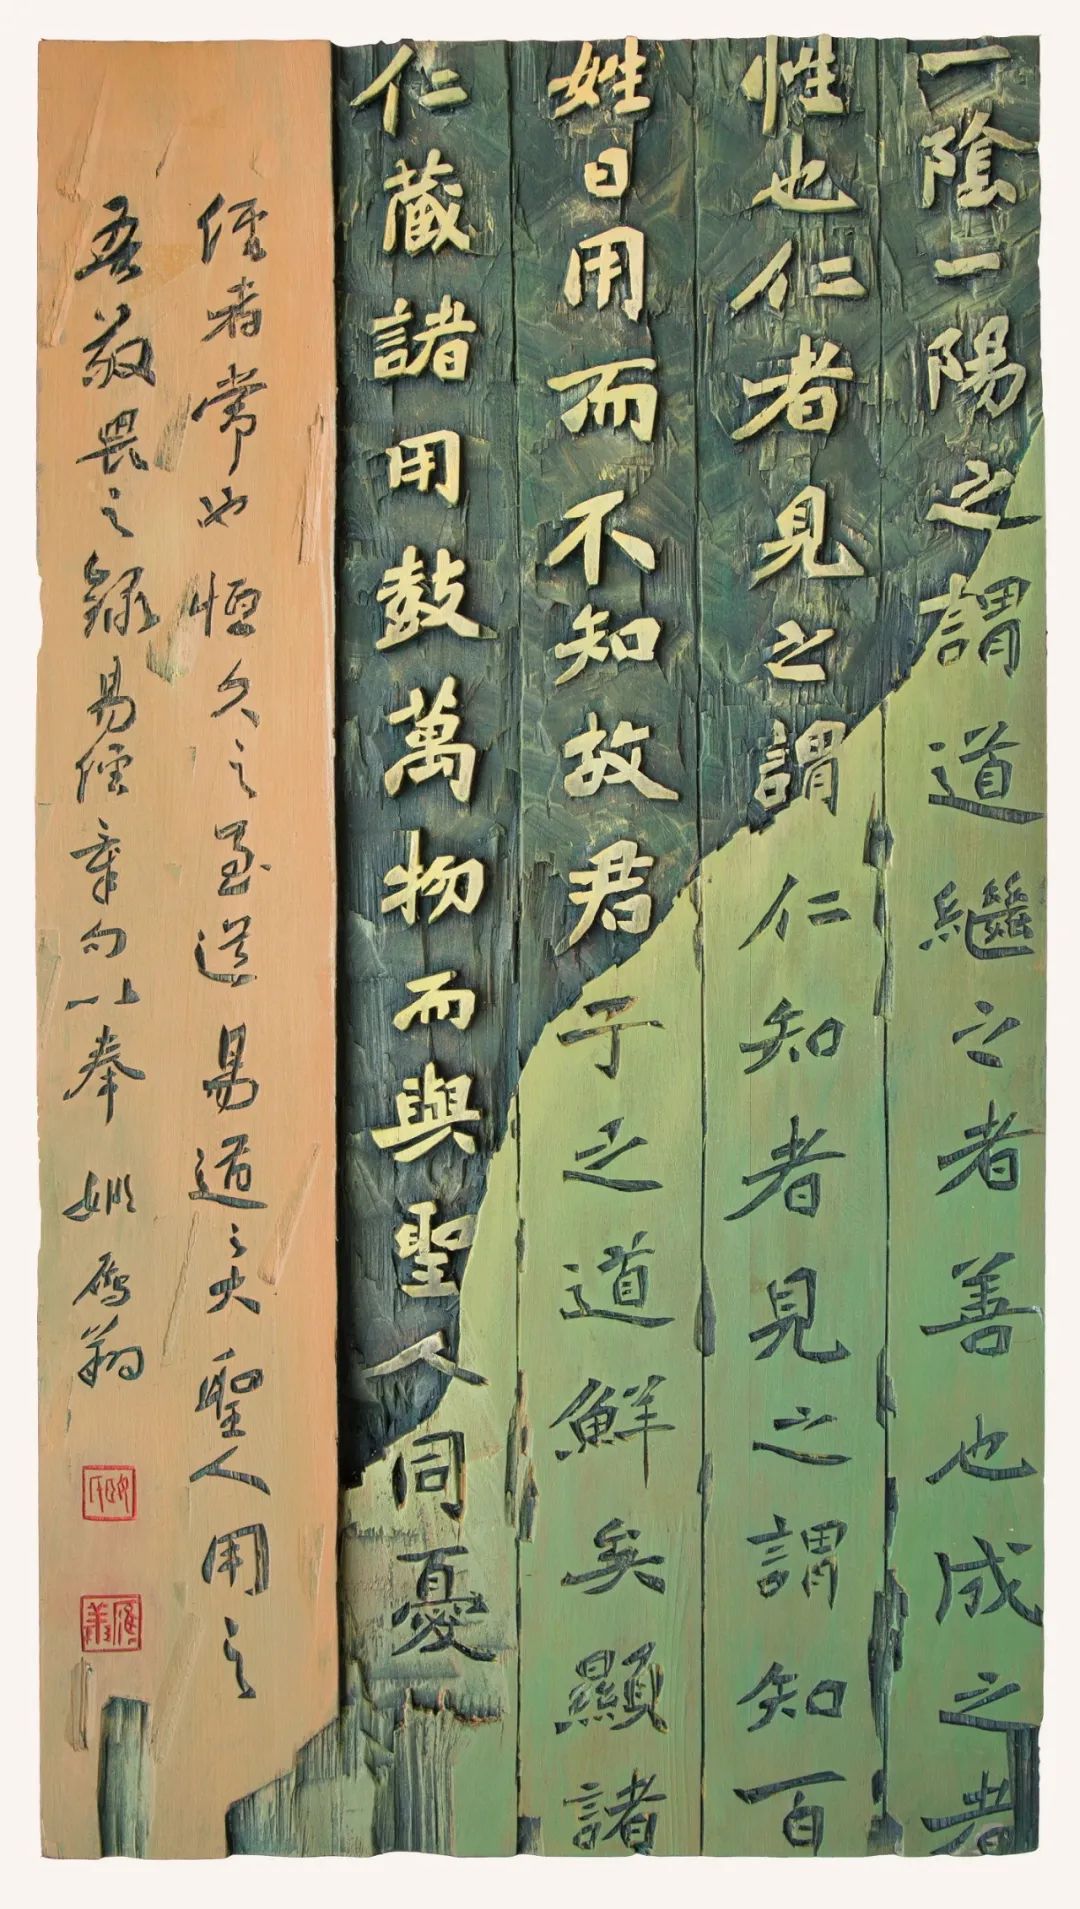 一陰一陽之謂道繼之者善也成之者
性也仁者見之謂仁知者見之謂知百
姓日用而不知故君子之道鮮矣顯諸
仁藏諸用鼓萬物而與聖人同憂
經者常也恒久之至道易道之大聖人用之
吾敬畏之錄易經章句以奉 姚